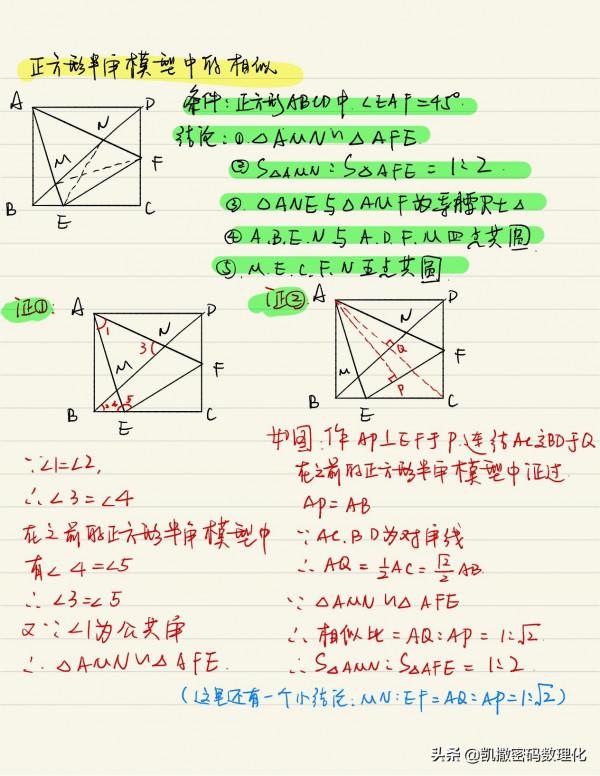 正方形半角模型中的相似
条件:正方形ABCD中.∠EAF=45°.
结论:①.△AMN∽△AFE.
②S△AMN:S△AFE=1:2.
③.△ANE与△AMF为等腰Rt△
④A.B.E.N与A.D.F.M四点共圆
⑤.M.E.C.F.N五点共圆
A
D
N
M
F
B
E
C
证①:
A
D
1
3
N
M
F
2
4
5
B
E
C
证②.
A
D
N
Q
M
F
P
B
E
C
∵∠1=∠2,
∴∠3=∠4
在之前的正方形半角模型中
有∠4=∠5
∴∠3=∠5
又∵∠1为公共角
∴△AMN∽△AFE.
如图.作AP⊥EF于P.连结AC交BD于Q
在之前的正方形半角模型中证过
AP=AB
∵AC.BD为对角线
∴AQ=½AC=√2/2 AB.
∵△AMN∽△AFE
∴相似比=AQ:AP=1:√2.
∴S△AMN:S△AFE=1:2
(这里还有一个小结论:MN:EF=AQ:AP=1:√2)
头条@凯撒密码数理化